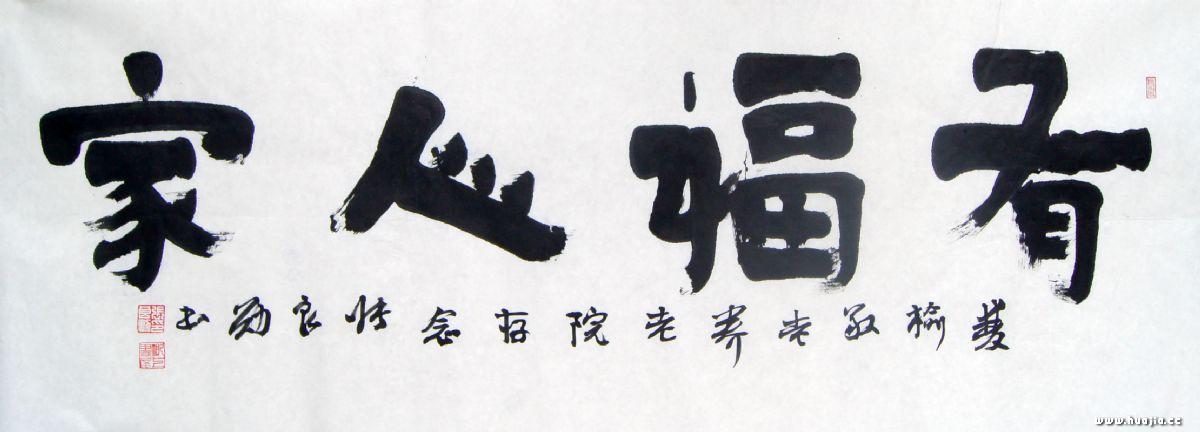 有福人家
雙榆敬老养老院存念 张良勋书
www.huajia.cc